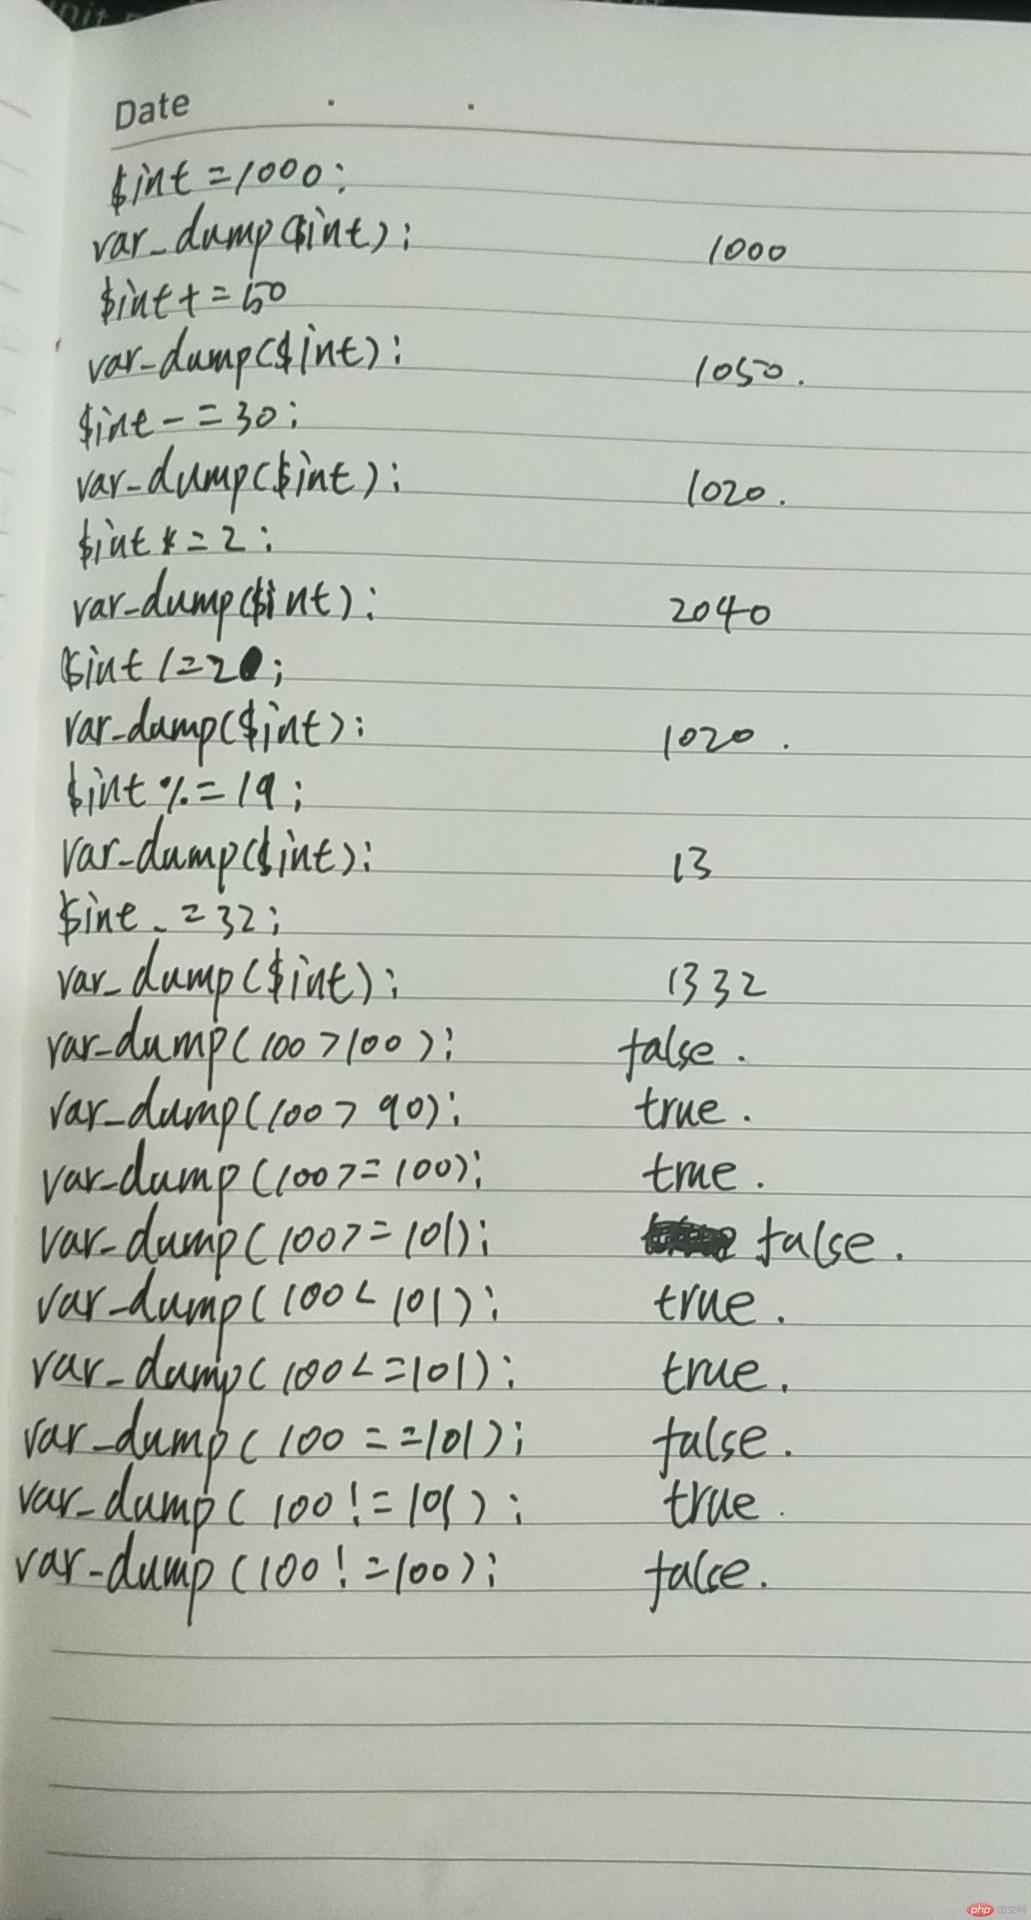 Date
$int =1000;
var_dump($int); 1000
$int+=50
var_dump($int); 1050.
$int-=30;
var_dump($int); 1020.
$int*=2;
var_dump($int); 2040
$int/=2;
var_dump($int); 1020.
$int%=19;
var_dump($int); 13
$int.=32;
var_dump($int); 1332
var_dump(100>100); false.
var_dump(100>90); true.
var_dump(100>=100); true.
var_dump(100>=101); false.
var_dump(100<101); true.
var_dump(100<=101); true.
var_dump(100==101); false.
var_dump(100!=101); true.
var_dump(100!=100); false.
php 中文网